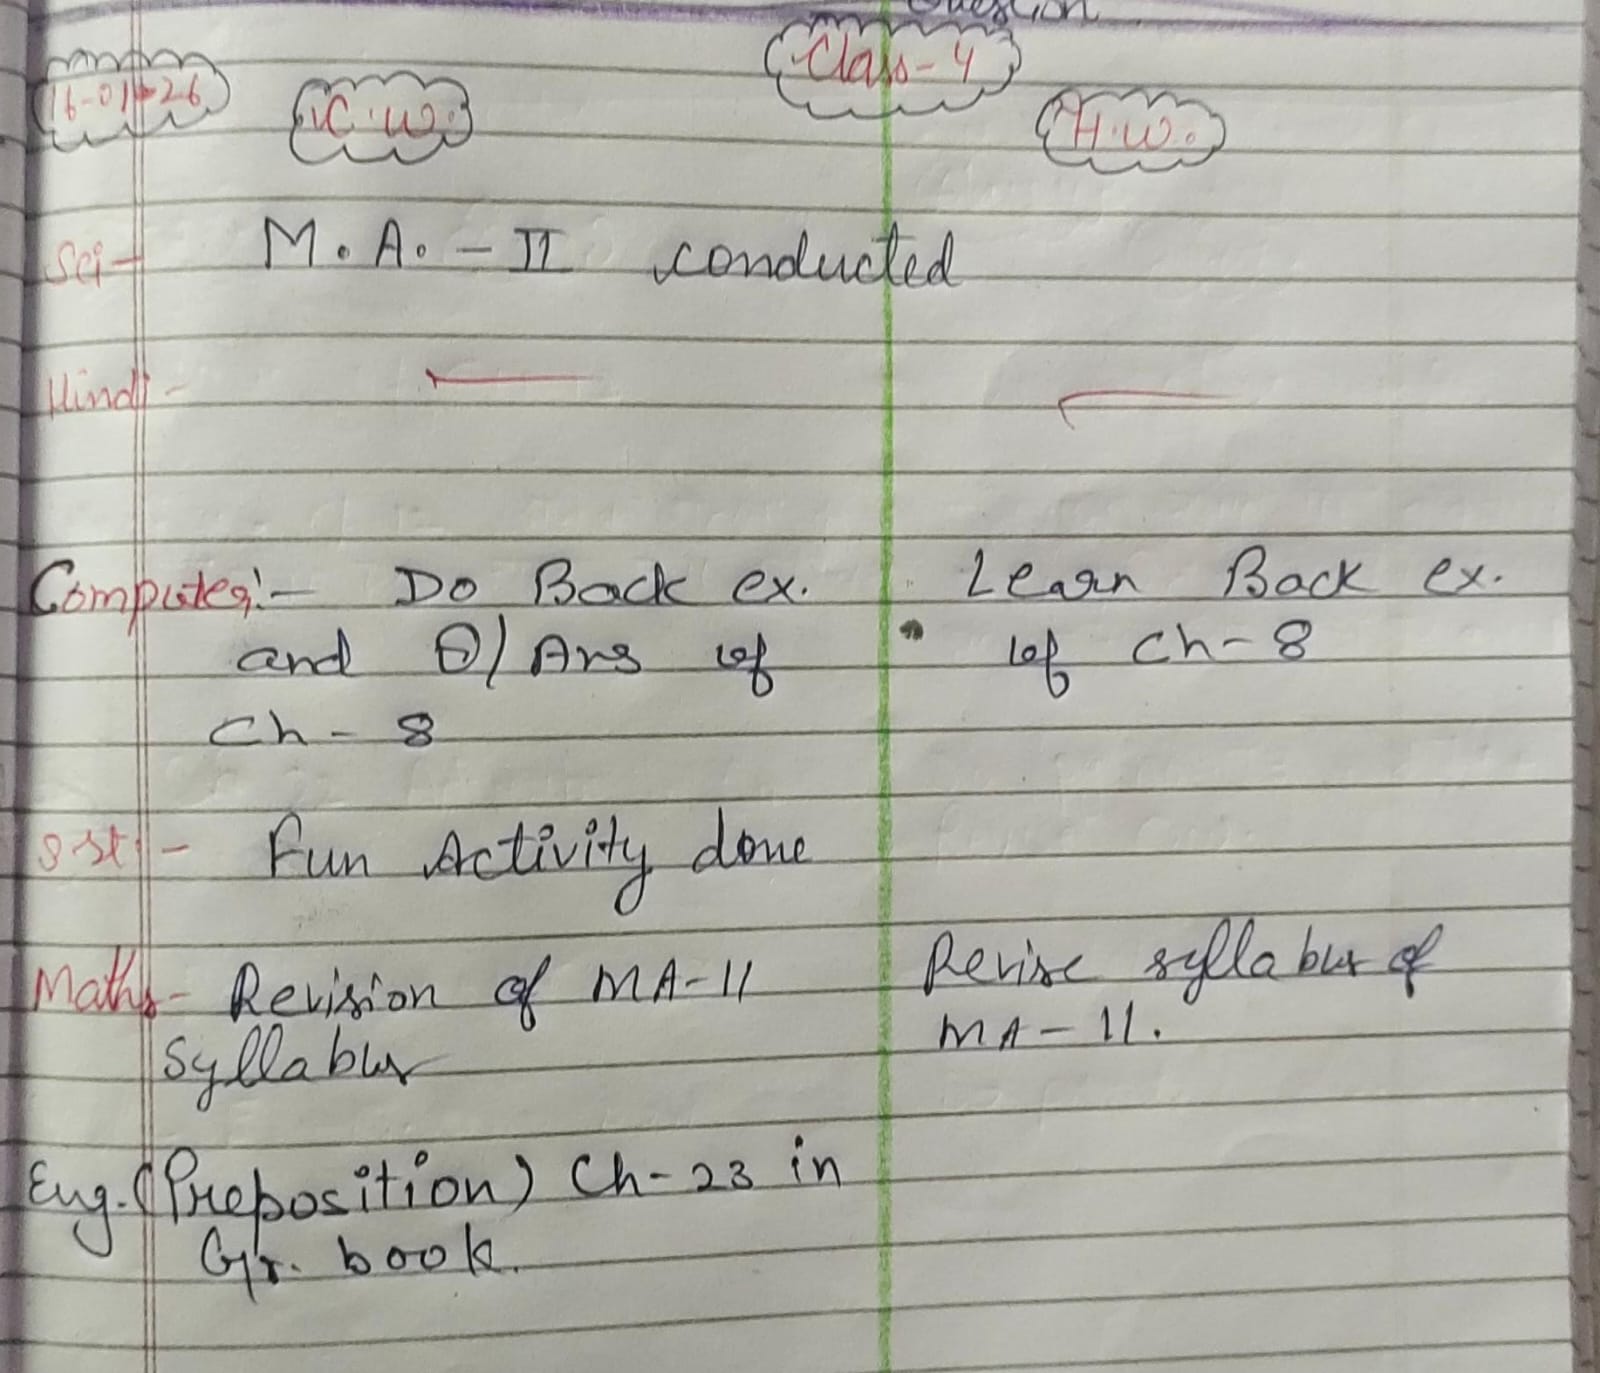 Question
Class-4
16-01-26 C.W. H.W.
Sci- M.A.-II conducted
Hindi -
Computer:- Do Back ex. Learn Back ex.
and Q/Ans of of Ch-8
Ch-8
S.st - Fun Activity done
Maths- Revision of MA-11 Revise syllabus of
Syllabus MA-11.
Eng. (Preposition) Ch-23 in
Gr. book.